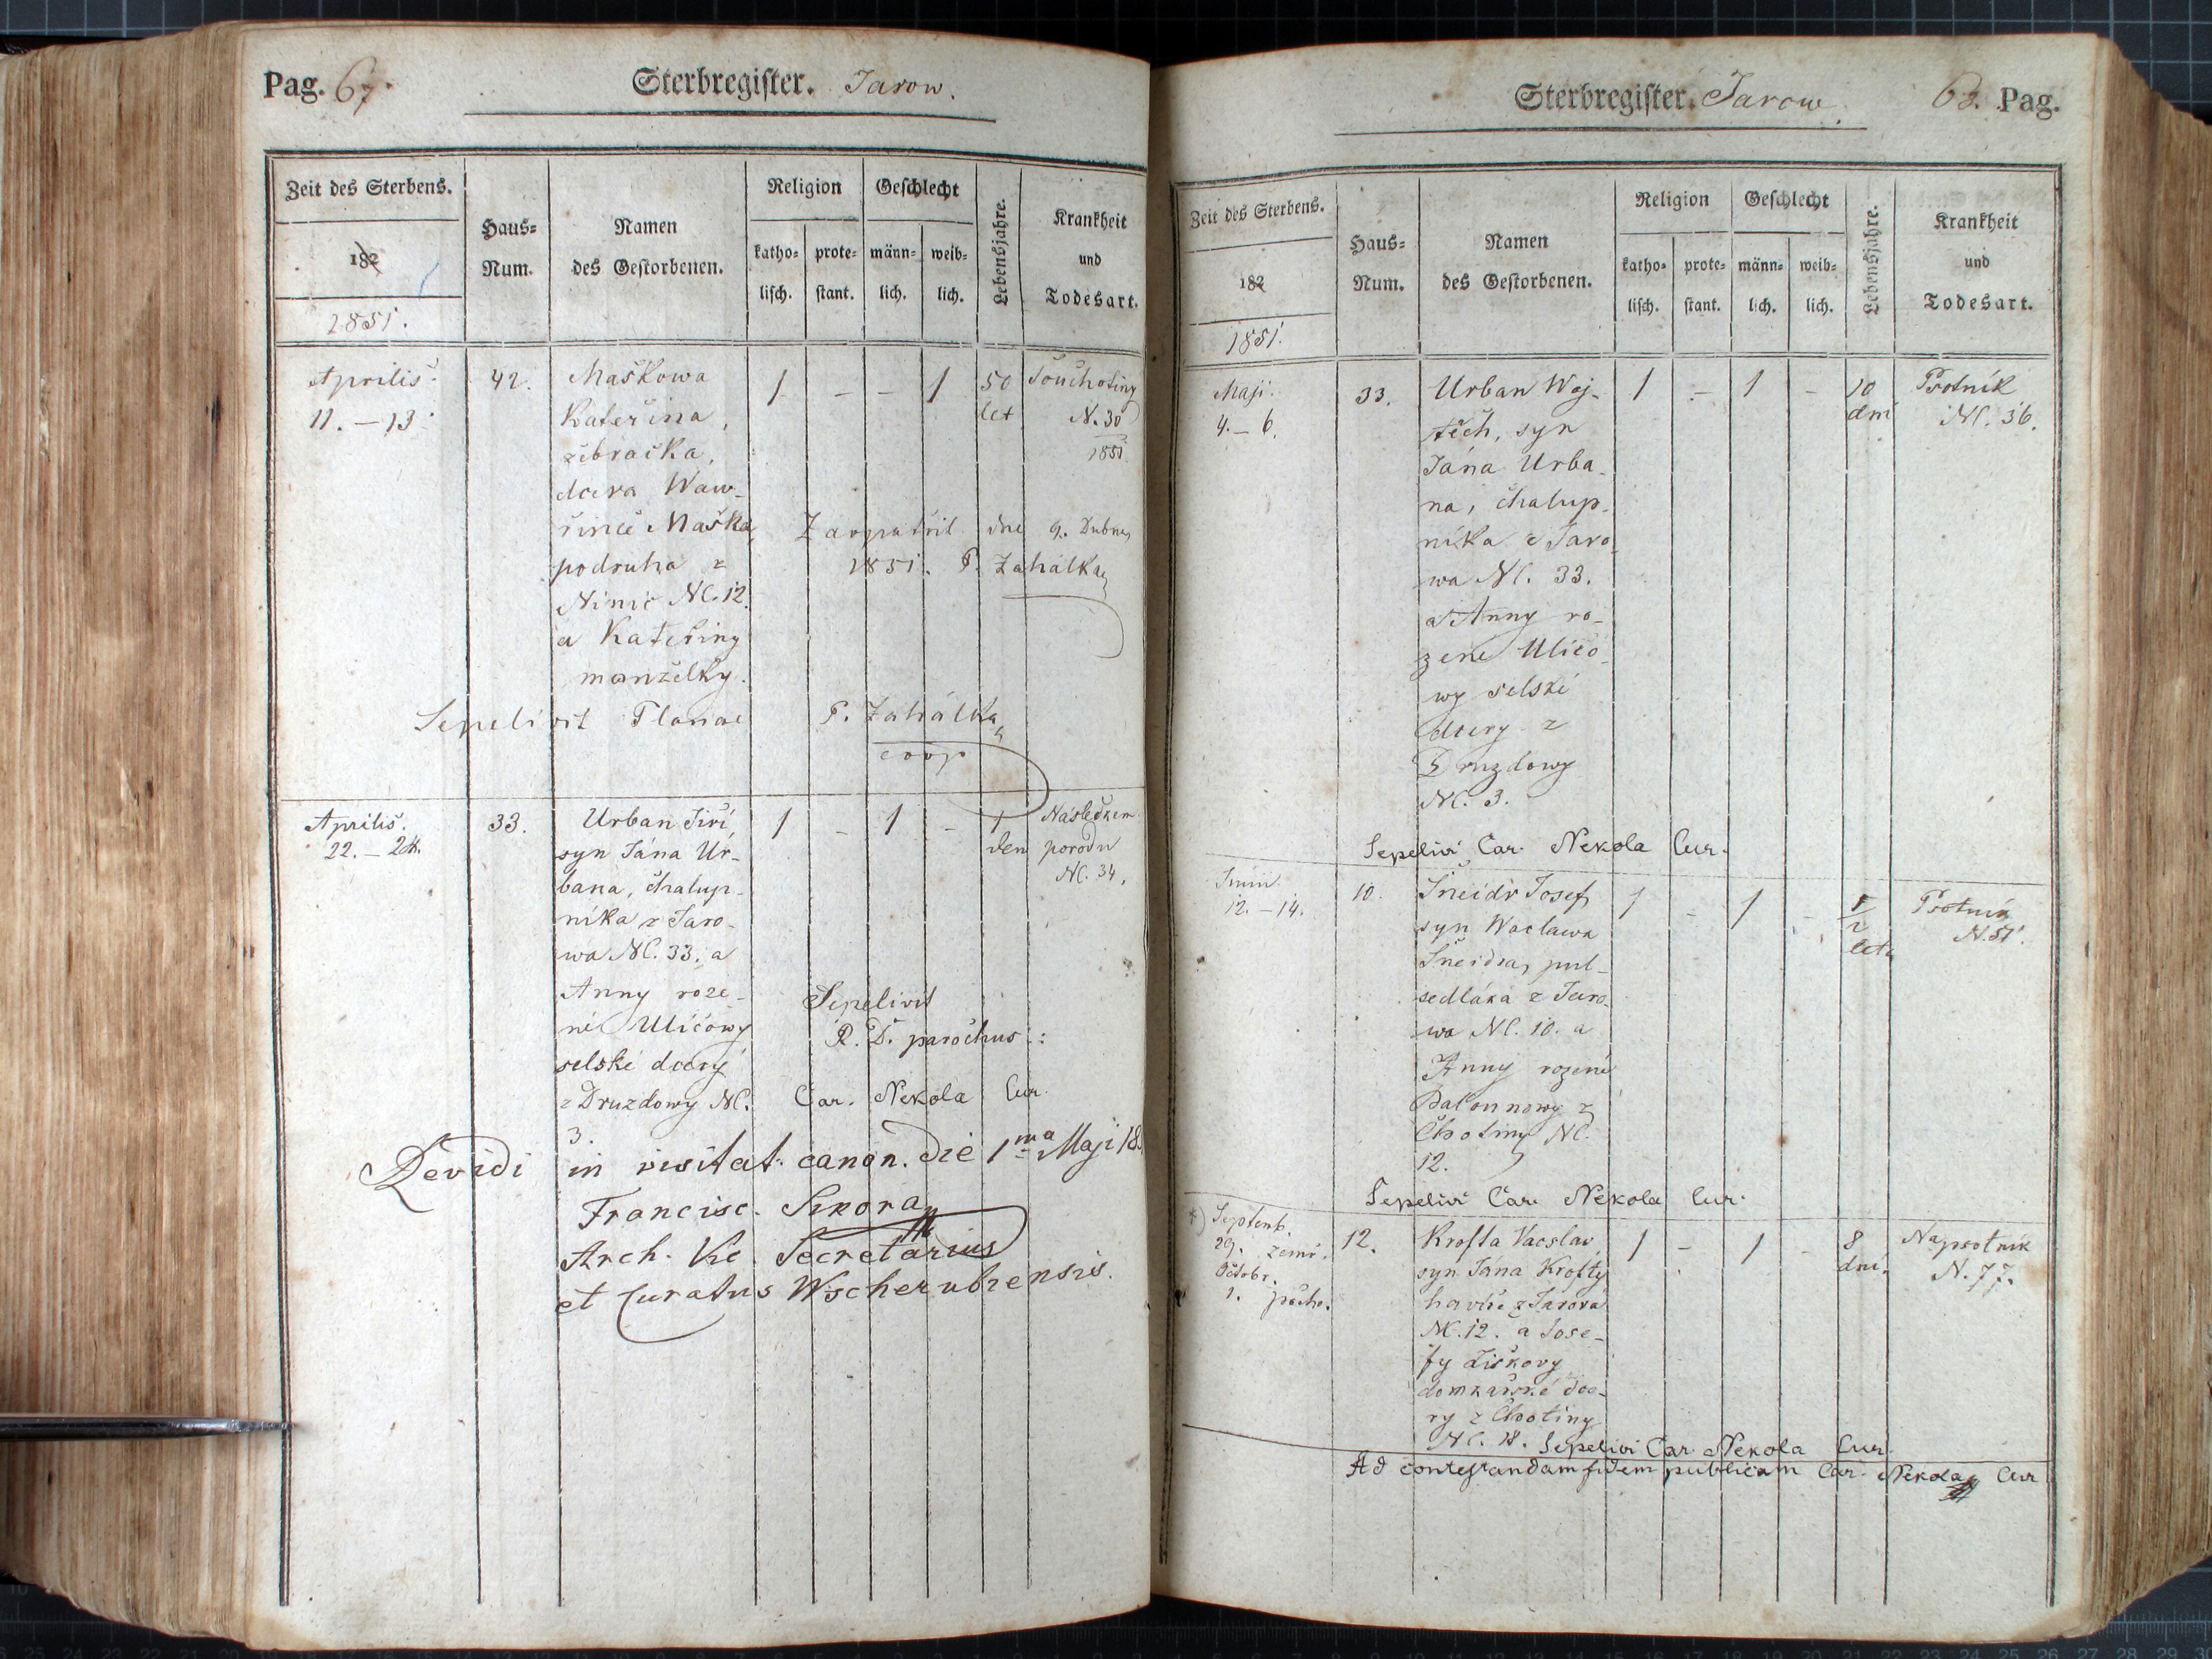 Pag. 67.
Sterbregister. Jarow.
Zeit des Sterbens.
182
1851.
Haus-
Num.
Namen
des Gestorbenen.
Religion
katho-
lisch.
prote-
stant.
Geschlecht
männ-
lich.
weib-
lich.
Lebensjahre.
Krankheit
und
Todesart.
Aprilis.
11. – 13.
42.
Maškowa
Kateřina,
žebračka,
dcera Waw-
řince Maška
podruha z
Ninic NC. 12.
a Kateřiny
manželky.
1 – – 1
50
let
Souchotiny
N. 30
1851.
Zaopatřil dne 9. Dubna
1851. P. Zahálka
Sepelivit P. Zahálka
coop
Aprilis.
22. – 24.
33.
Urban Jiří,
syn Jána Ur-
bana, chalup-
níka z Jaro-
wa NC. 33. a
Anny roze-
né Uličowy
selské dcery
z Druzdowy NC.
3.
1 – 1 –
1
den
Následkem
porodu
NC. 34.
Sepelivit
R. D. parochus:
Car. Nekola Cur.
Revidi in visitat. canon. die 1ma Maji 18
Francisc. Sikora
Arch. Vic. Secretarius
et Curatus Wscherubiensis.
Sterbregister. Jarow.
Pag.
Zeit des Sterbens.
182
1851.
Haus-
Num.
Namen
des Gestorbenen.
Religion
katho-
lisch.
prote-
stant.
Geschlecht
männ-
lich.
weib-
lich.
Lebensjahre.
Krankheit
und
Todesart.
Maji.
4. – 6.
33.
Urban Woj-
těch, syn
Jána Urba-
na, chalup-
níka z Jaro-
wa NC. 33.
a Anny ro-
zené Uličo-
wy selské
dcery z
Druzdowy
NC. 3.
1 – 1 –
10
dní
Psotník
NC. 36.
Sepelivi Car. Nekola Cur.
Junii
12. – 14.
10.
Šneidr Josef,
syn Waclawa
Šneidra, pul-
sedláka z Jaro-
wa NC. 10. a
Anny rozené
Balounowy z
Chotiny NC.
12.
1 – 1 –
1
2
leta
Psotník
N. 51.
Sepelivi Car. Nekola Cur.
*) Septemb.
29. zemř.
Octobr.
1. pocho.
12.
Krofta Vacslav
syn Jána Krofty
havíře z Jarova
NC. 12. a Jose-
fy Liškovy
domkářské dce-
ry z Chotiny
NC. 18. Sepelivi Car. Nekola Cur.
1 – 1 –
8
dní.
Na psotník
N. 77.
Ad contestandam fidem publicam Car. Nekola Cur